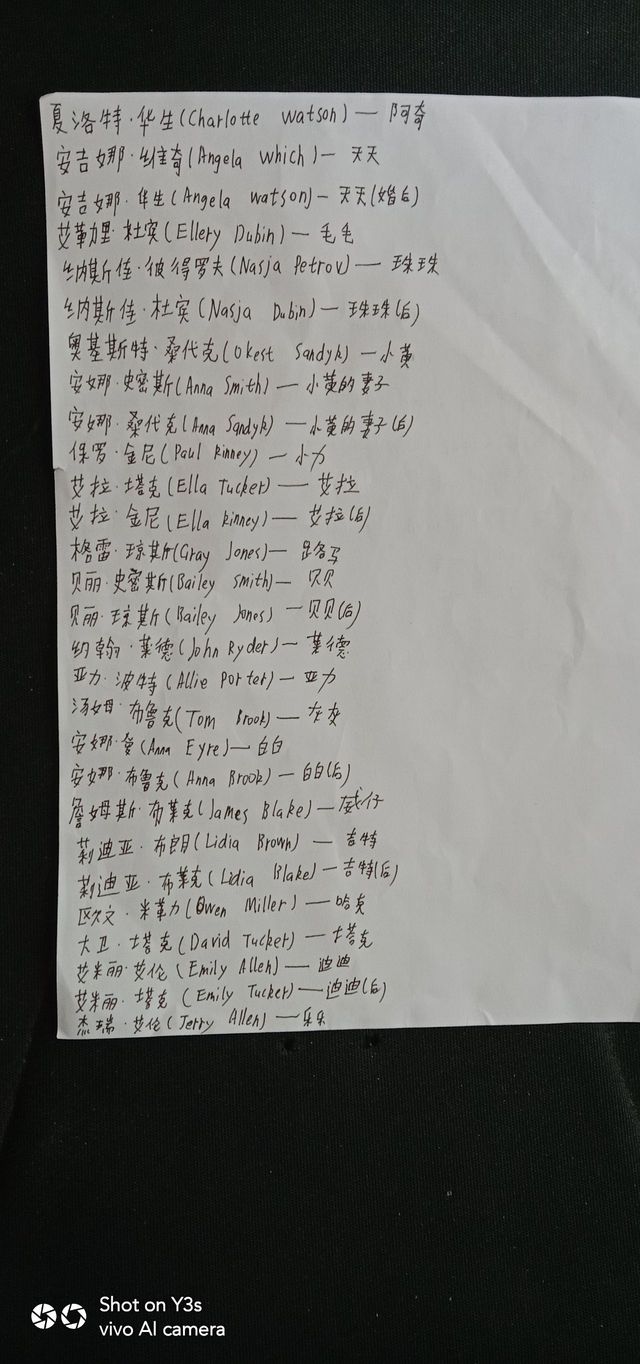 夏洛特·华生(Charlotte Watson) — 阿奇
安吉娜·维奇(Angela Which) — 天天
安吉娜·华生(Angela Watson) — 天天(婚后)
艾勒里·杜宾(Ellery Dubin) — 毛毛
纳斯佳·彼得罗夫(Nasja Petrov) — 珠珠
纳斯佳·杜宾(Nasja Dubin) — 珠珠(后)
奥基斯特·桑代克(Okest Sandyk) — 小黄
安娜·史密斯(Anna Smith) — 小黄的妻子
安娜·桑代克(Anna Sandyk) — 小黄的妻子(后)
保罗·金尼(Paul Kinney) — 小力
艾拉·塔克(Ella Tucker) — 艾拉
艾拉·金尼(Ella Kinney) — 艾拉(后)
格雷·琼斯(Gray Jones) — 路马
贝丽·史密斯(Bailey Smith) — 贝贝
贝丽·琼斯(Bailey Jones) — 贝贝(后)
约翰·莱德(John Ryder) — 莱德
亚力·波特(Allie Porter) — 亚力
汤姆·布鲁克(Tom Brook) — 灰灰
安娜·爱(Anna Eyre) — 白白
安娜·布鲁克(Anna Brook) — 白白(后)
詹姆斯·布莱克(James Blake) — 威仔
莉迪亚·布朗(Lidia Brown) — 吉特
莉迪亚·布莱克(Lidia Blake) — 吉特(后)
欧文·米勒力(Owen Miller) — 哈克
大卫·塔克(David Tucker) — 塔克
艾米丽·艾伦(Emily Allen) — 迪迪
艾米丽·塔克(Emily Tucker) — 迪迪(后)
杰瑞·艾伦(Jerry Allen) — 乐乐
Shot on Y3s
vivo AI camera